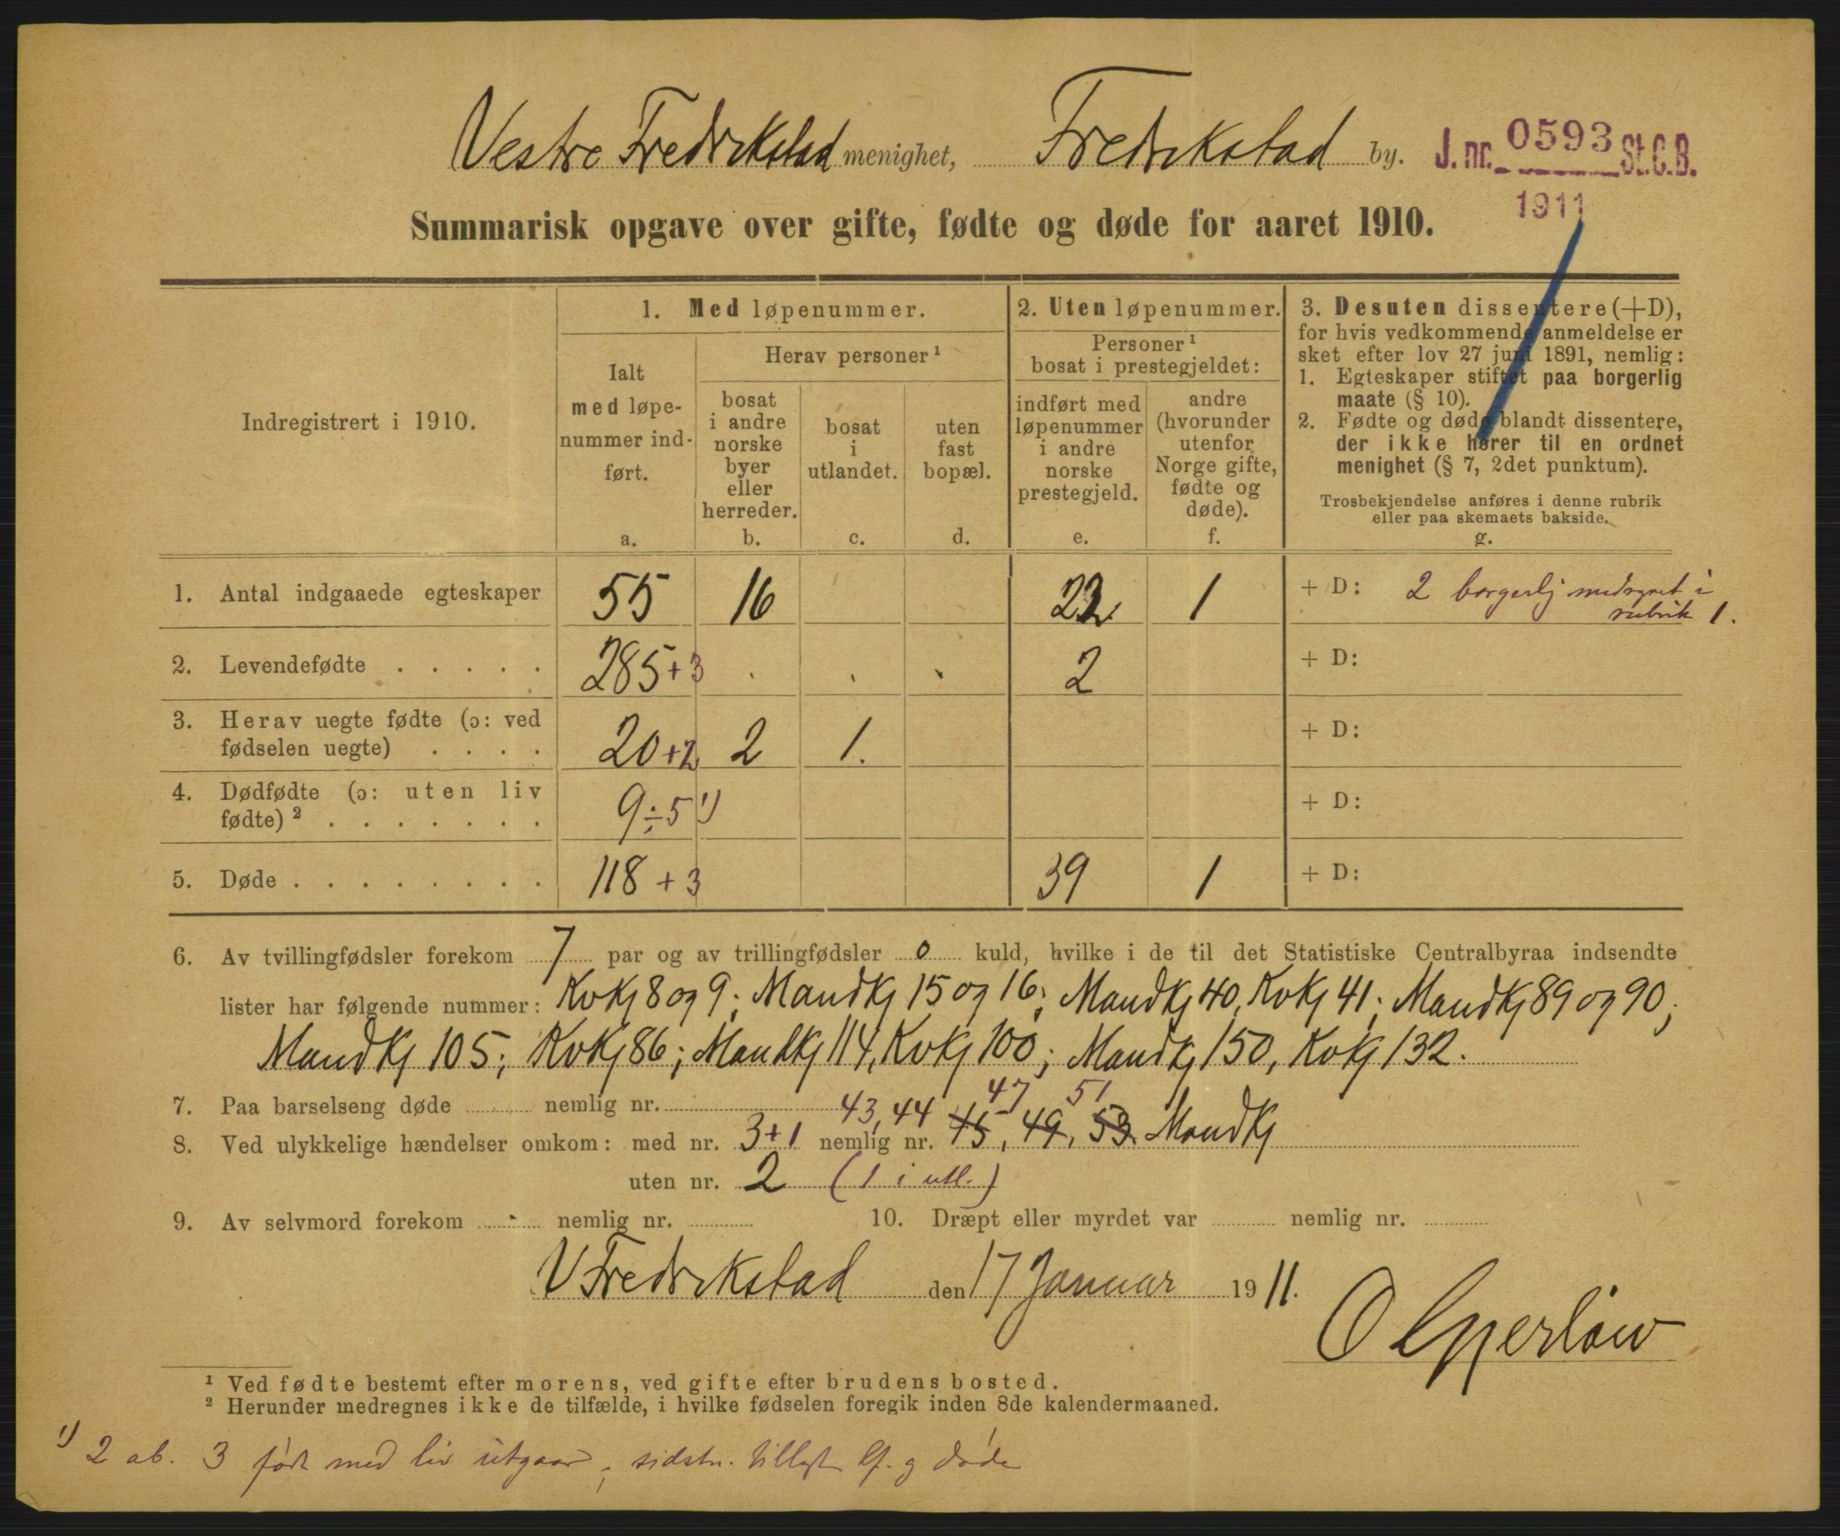 Vestre Fredrikstad menighet, Fredrikstad by. J. nr. 0593 St. C. B.
1911
Summarisk opgave over gifte, fødte og døde for aaret 1910.
Indregistrert i 1910.
1. Med løpenummer.
Ialt
med løpe-
nummer ind-
ført.
a.
Herav personer ¹
bosat
i andre
norske
byer
eller
herreder.
b.
bosat
i
utlandet.
c.
uten
fast
bopæl.
d.
2. Uten løpenummer.
Personer ¹
bosat i prestegjeldet:
indført med
løpenummer
i andre
norske
prestegjeld.
e.
andre
(hvorunder
utenfor
Norge gifte,
fødte og
døde).
f.
3. Desuten dissentere (+D),
for hvis vedkommende anmeldelse er
sket efter lov 27 juni 1891, nemlig:
1. Egteskaper stiftet paa borgerlig
maate (§ 10).
2. Fødte og døde blandt dissentere,
der ikke hører til en ordnet
menighet (§ 7, 2det punktum).
Trosbekjendelse anføres i denne rubrik
eller paa skemaets bakside.
g.
1. Antal indgaaede egteskaper 55 16 22 1 + D: 2 borgerlig medregnet i
rubrik 1.
2. Levendefødte . . . . . 285+3 . . . 2 + D:
3. Herav uegte fødte (ɔ: ved
fødselen uegte) . . . . 20+2 2 1. + D:
4. Dødfødte (ɔ: uten liv
fødte) ² . . . . . . . 9÷5 ¹) + D:
5. Døde . . . . . . . . . 118+3 39 1 + D:
6. Av tvillingfødsler forekom 7 par og av trillingfødsler 0 kuld, hvilke i de til det Statistiske Centralbyraa indsendte
lister har følgende nummer: Kvkj 8 og 9; Mandkj 15 og 16; Mandkj 40, Kvkj 41; Mandkj 89 og 90;
Mandkj 105; Kvkj 86; Mandkj 114, Kvkj 100; Mandkj 150, Kvkj 132.
7. Paa barselseng døde nemlig nr.
43, 44 47 51
8. Ved ulykkelige hændelser omkom: med nr. 3+1 nemlig nr. 45, 49, 53 Mandkj
uten nr. 2 (1 i utl.)
9. Av selvmord forekom - nemlig nr. 10. Dræpt eller myrdet var nemlig nr.
V Fredrikstad den 17 Januar 1911.
¹ Ved fødte bestemt efter morens, ved gifte efter brudens bosted.
² Herunder medregnes ikke de tilfælde, i hvilke fødselen foregik inden 8de kalendermaaned.
¹) 2 ab. 3 født med liv utgaar, sidstn. tillagt lf. og døde